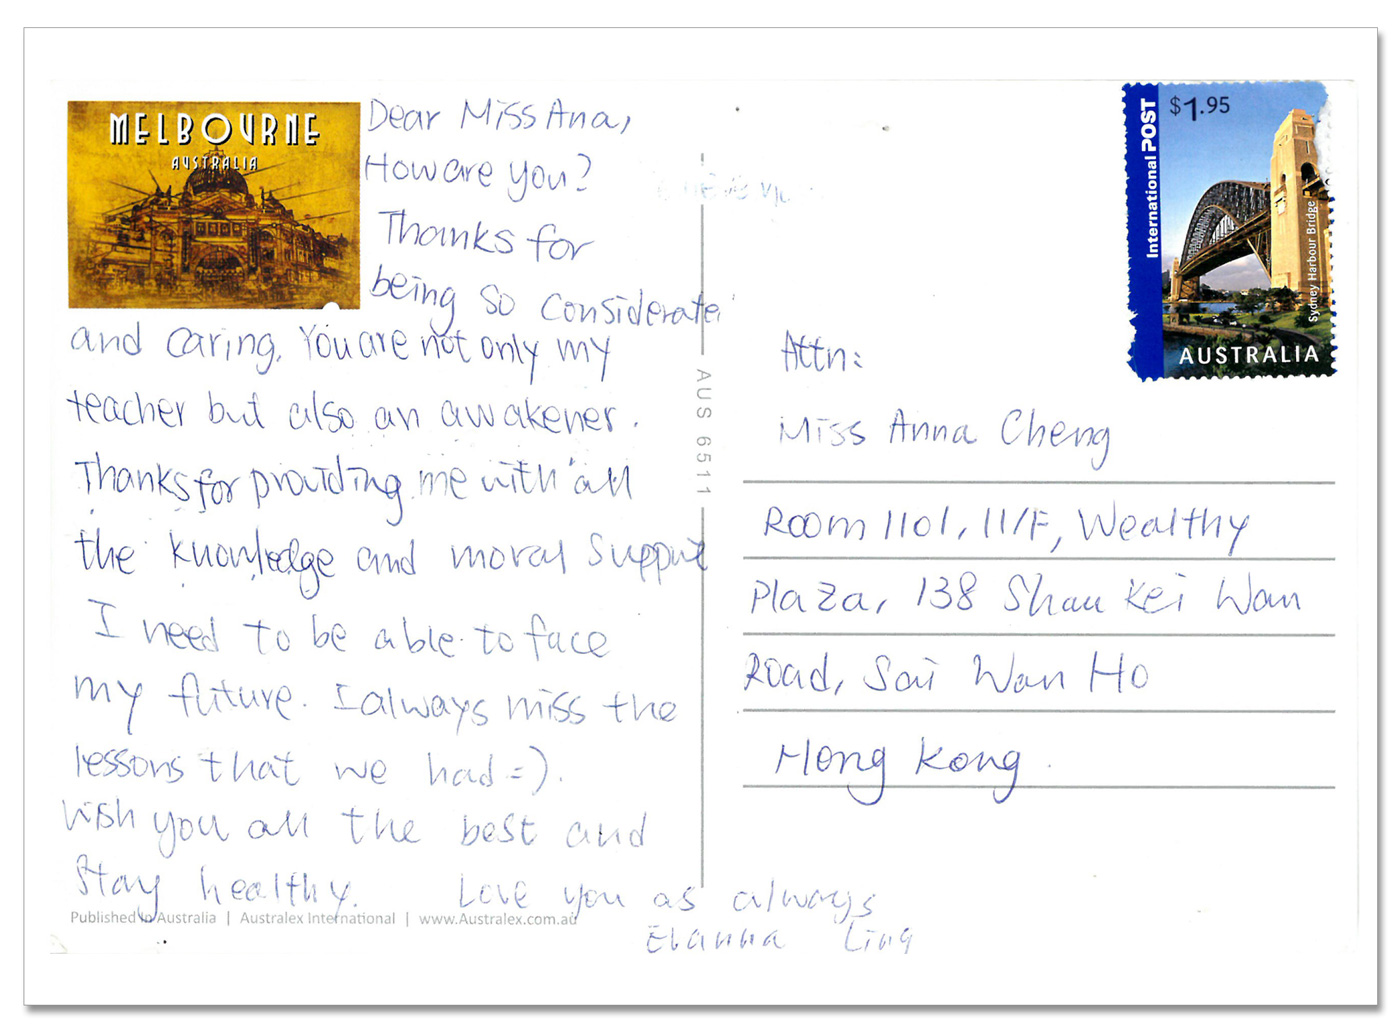 MELBOURNE
AUSTRALIA
Dear Miss Ana,
How are you?
Thanks for
being so considerate
and caring. You are not only my
teacher but also an awakener.
Thanks for providing me with all
the knowledge and moral support
I need to be able to face
my future. I always miss the
lessons that we had =).
Wish you all the best and
Stay healthy. Love you as always
Ling
Published in Australia | Australex International | www.Australex.com.au
AUS 6511
International POST
$1.95
Sydney Harbour Bridge
AUSTRALIA
Attn:
Miss Anna Cheng
Room 1101, 11/F, Wealthy
Plaza, 138 Shau Kei Wan
Road, Sai Wan Ho
Hong Kong.